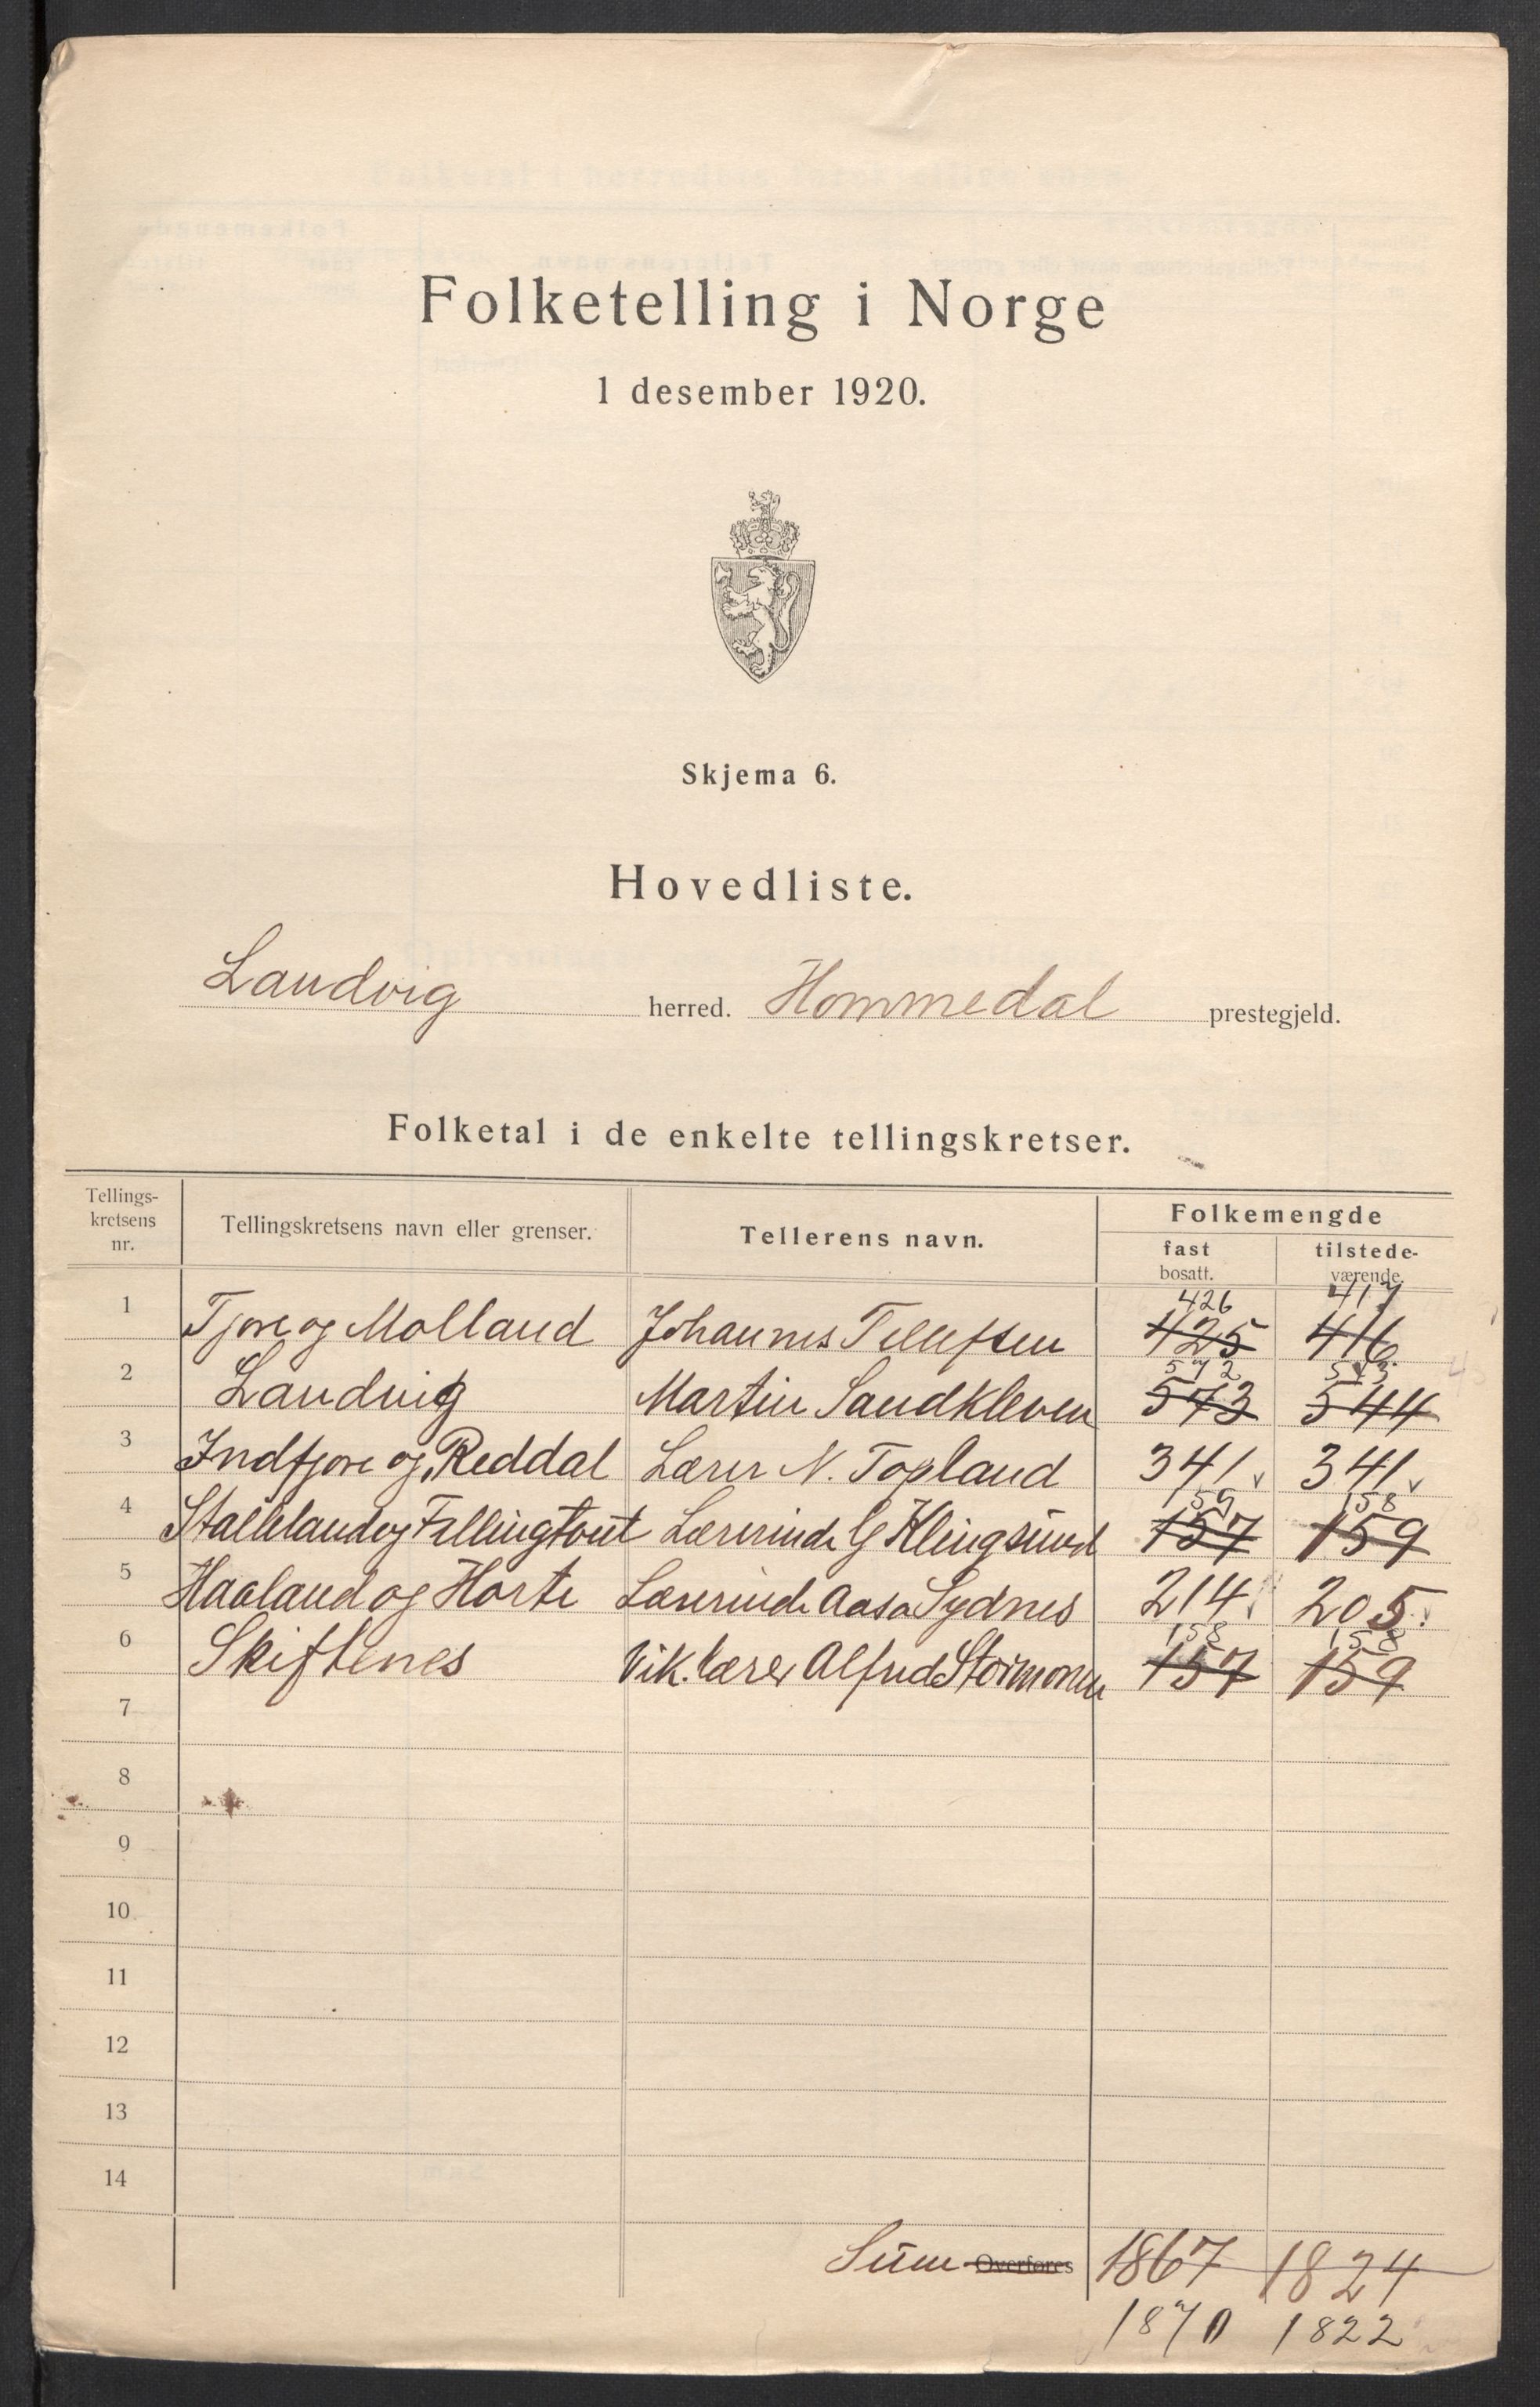 Folketelling i Norge
1 desember 1920.
Skjema 6.
Hovedliste.
Landvig herred. Hommedal prestegjeld.
Folketal i de enkelte tellingskretser.
Tellings-
kretsens
nr.
Tellingskretsens navn eller grenser.
Tellerens navn.
Folkemengde
fast
bosatt.
tilstede-
værende.
426 417
1 Tjore og Molland Johannes Tellefsen 425 416
572 543
2 Landvig Martin Sandkleven 573 544
3 Indtjore og Reddal Lærer N. Topland 341 341
159 158
4 Stalleland og Fellingtveit Lærerinde G Klingsund 157 159
5 Haaland og Horte Lærerinde Aasa Sydnes 214 205
158 158
6 Skiftenes Vik. lærer Alfred Stormoen 157 159
7
8
9
10
11
12
13
14
Sum Overføres 1867 1824
1870 1822